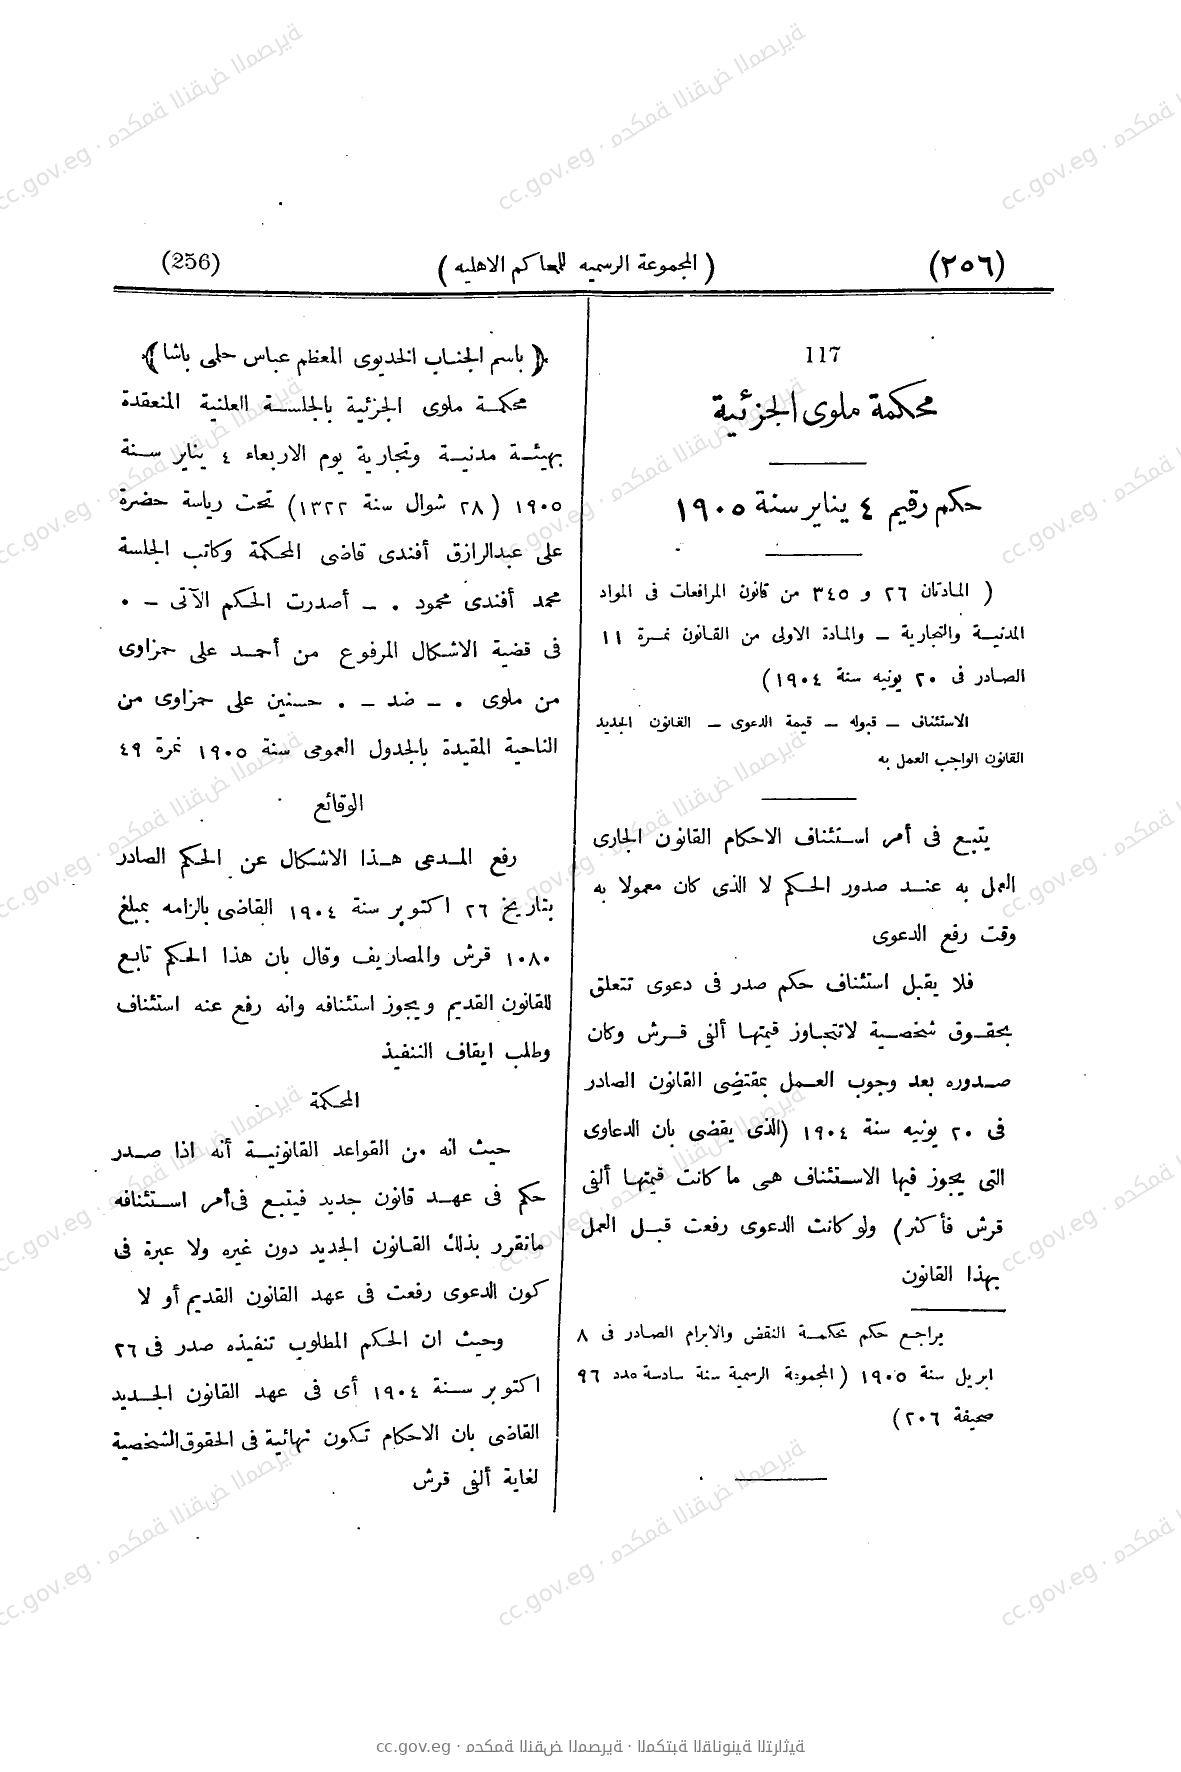 (٢٥٦)
( المجموعة الرسميه للمحاكم الاهليه )
(256)
117
محكمة ملوى الجزئية
حكم رقيم ٤ يناير سنة ١٩٠٥
( المادتان ٢٦ و ٣٤٥ من قانون المرافعات فى المواد
المدنيــة والتجارية – والمادة الاولى من القانون نمرة ١١
الصادر فى ٢٠ يونيه سنة ١٩٠٤)
الاستئناف – قبوله – قيمة الدعوى – القانون الجديد
القانون الواجب العمل به
يتبع فى أمر استئناف الاحكام القانون الجارى
العمل به عند صدور الحكم لا الذى كان معمولا به
وقت رفع الدعوى
فلا يقبل استئناف حكم صدر فى دعوى تتعلق
بحقوق شخصية لاتتجاوز قيمتها ألفى قرش وكان
صدوره بعد وجوب العمل بمقتضى القانون الصادر
فى ٢٠ يونيه سنة ١٩٠٤ (الذى يقضى بان الدعاوى
التى يجوز فيها الاستئناف هى ما كانت قيمتها ألفى
قرش فأكثر) ولو كانت الدعوى رفعت قبل العمل
بهذا القانون
يراجع حكم محكمة النقض والابرام الصادر فى ٨
ابريل سنة ١٩٠٥ (المجموعة الرسمية سنة سادسة عدد ٩٦
صحيفة ٢٠٦)
﴿ باسم الجناب الخديوى المعظم عباس حلمى باشا ﴾
محكمة ملوى الجزئية بالجلسة العلنية المنعقدة
بهيئة مدنية وتجارية يوم الاربعاء ٤ يناير سنة
١٩٠٥ (٢٨ شوال سنة ١٣٢٢) تحت رياسة حضرة
على عبدالرازق أفندى قاضى المحكمة وكاتب الجلسة
محمد أفندى محمود . – أصدرت الحكم الآتى – .
فى قضية الاشكال المرفوع من أحمد على حمزاوى
من ملوى . – ضد – . حسنين على حمزاوى من
الناحية المقيدة بالجدول العمومى سنة ١٩٠٥ نمرة ٤٩
الوقائع
رفع المدعى هذا الاشكال عن الحكم الصادر
بتاريخ ٢٦ اكتوبر سنة ١٩٠٤ القاضى بالزامه بمبلغ
١٠٨٠ قرش والمصاريف وقال بان هذا الحكم تابع
للقانون القديم ويجوز استئنافه وانه رفع عنه استئناف
وطلب ايقاف التنفيذ
المحكمة
حيث انه من القواعد القانونية أنه اذا صدر
حكم فى عهد قانون جديد فيتبع فى أمر استئنافه
ماتقرر بذلك القانون الجديد دون غيره ولا عبرة فى
كون الدعوى رفعت فى عهد القانون القديم أو لا
وحيث ان الحكم المطلوب تنفيذه صدر فى ٢٦
اكتوبر سنة ١٩٠٤ أى فى عهد القانون الجديد
القاضى بان الاحكام تكون نهائية فى الحقوق الشخصية
لغاية ألفى قرش
cc.gov.eg · محكمة النقض المصرية · المكتبة القانونية التراثية